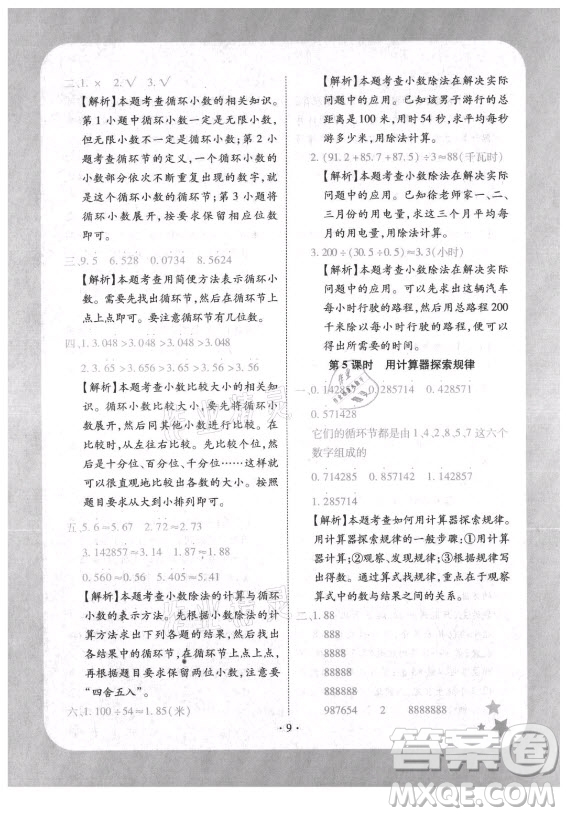 二、1. × 2. √ 3. √
【解析】本题考查循环小数的相关知识。
第 1 小题中循环小数一定是无限小数,
但无限小数不一定是循环小数;第 2 小
题考查循环节的定义,一个循环小数的
小数部分依次不断重复出现的数字,就
是这个循环小数的循环节;第 3 小题将
循环小数展开,按要求保留相应位数
即可。
三、9.5 6.528 0.0734 8.5624
【解析】本题考查用简便方法表示循环小
数。需要先找出循环节,然后在循环节上
点上点即可。要注意循环节有几位数。
四、1. 3.048 >3.048 >3.048 >3.048
2. 3.65 >3.656 >3.56 >3.556
【解析】本题考查小数比较大小的相关
知识。可以将循环小数展开,然后进行
比较。在比较时,要先比较整数部分,再
从左往右依次比较。先比较十分位,再
比较百分位、千分位……位数较多的题
目可以竖着写,使数位对齐,这样能很
直观地比较出各个数的大小。注意根
据题目要求从大到小排列即可。
五、5.6≈5.67 2.72≈2.73
3.142857≈3.14 1.857142≈1.86
0.560≈0.56 5.54≈5.55
【解析】本题考查小数除法的计算与循环
小数的表示方法。先根据小数除法的计
算方法求出下列各题的结果,然后找出结
果中的循环节,在循环节上点上点。
再根据题目要求保留两位小数,注意要
“四舍五入”。
六、1. 100÷54≈1.85(米)
【解析】本题考查小数除法在解决实际
问题中的应用。已知该男子游行的总
距离是 100 米,用时 54 秒,求平均每秒
游多少米,用除法计算。
2. (91.2+85.7+87.5)÷3≈88(千瓦时)
【解析】本题考查小数除法在解决实际
问题中的应用。已知徐老师家一、二、
三月份的用电量,求这三个月平均每月
的用电量,用除法计算。
3. 200÷(30.5÷0.5)≈3.3(小时)
【解析】本题考查小数除法在解决实际
问题中的应用。可以先求出这辆汽车
每小时行驶的路程,然后用总路程 200
千米除以每小时行驶的路程,即可求出
所需要的时间。
第 5 课时 用计算器探索规律
一、0.142857 0.285714 0.428571
0.571428
它们的循环节都是由 1,4,2,8,5,7 这六个
数字组成的
0.714285 0.857142 1
1.285714
【解析】本题考查如何用计算器探索规律。
用计算器探索规律的一般步骤:①用计
算器计算;②观察、发现规律;③写出结
果或得数。通过算式找规律,在于观察
算式中的数与结果之间的关系。
二、1. 88
888
8888
88888
888888
987654 2 8888888
· 9 ·
答案卷
MXQE.COM